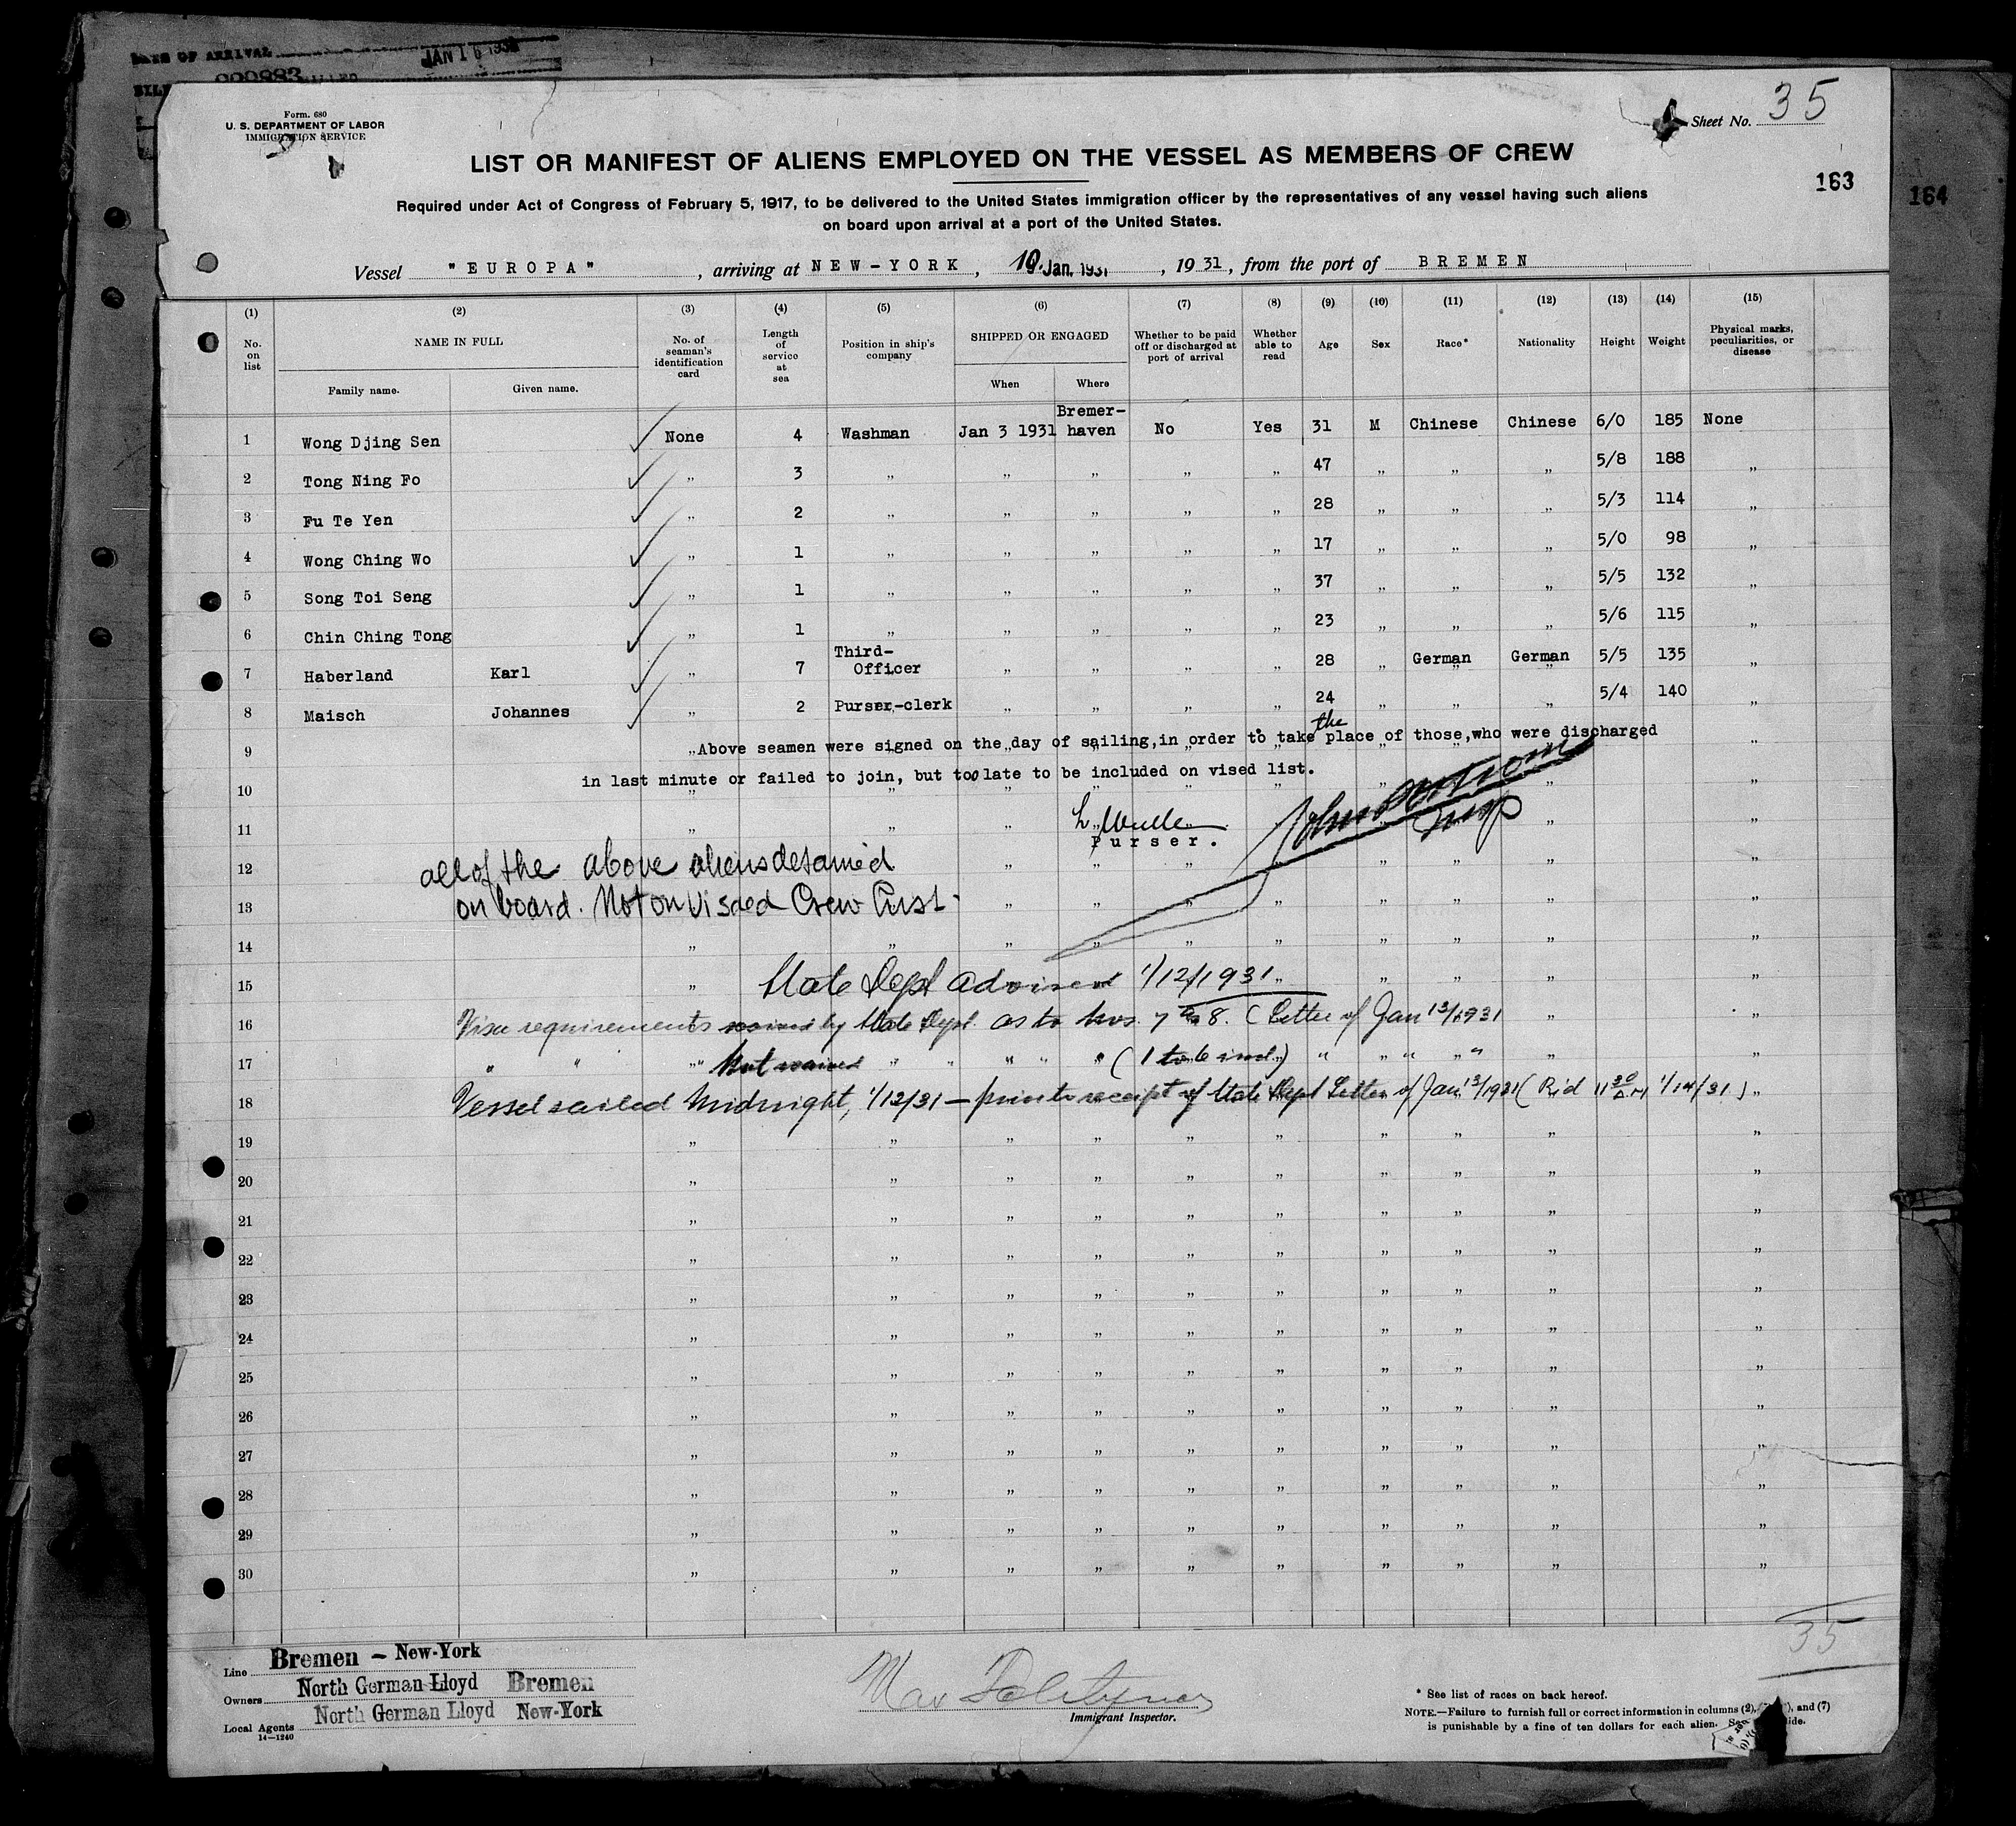 DATE OF ARRIVAL JAN 16 1931
Form. 680
U. S. DEPARTMENT OF LABOR
IMMIGRATION SERVICE
Sheet No. 35
LIST OR MANIFEST OF ALIENS EMPLOYED ON THE VESSEL AS MEMBERS OF CREW
163
164
Required under Act of Congress of February 5, 1917, to be delivered to the United States immigration officer by the representatives of any vessel having such aliens
on board upon arrival at a port of the United States.
Vessel "EUROPA", arriving at NEW-YORK, 10. Jan. 1931, 1931, from the port of BREMEN
(1) (2) (3) (4) (5) (6) (7) (8) (9) (10) (11) (12) (13) (14) (15)
No. on list NAME IN FULL Family name. Given name. No. of seaman's identification card Length of service at sea Position in ship's company SHIPPED OR ENGAGED When Where Whether to be paid off or discharged at port of arrival Whether able to read Age Sex Race* Nationality Height Weight Physical marks, peculiarities, or disease
1 Wong Djing Sen None 4 Washman Jan 3 1931 Bremer-haven No Yes 31 M Chinese Chinese 6/0 185 None
2 Tong Ning Fo „ 3 „ „ „ „ „ 47 „ „ „ 5/8 188 „
3 Fu Te Yen „ 2 „ „ „ „ „ 28 „ „ „ 5/3 114 „
4 Wong Ching Wo „ 1 „ „ „ „ „ 17 „ „ „ 5/0 98 „
5 Song Toi Seng „ 1 „ „ „ „ „ 37 „ „ „ 5/5 132 „
6 Chin Ching Tong „ 1 „ „ „ „ „ 23 „ „ „ 5/6 115 „
7 Haberland Karl „ 7 Third-Officer „ „ „ „ 28 „ German German 5/5 135 „
8 Maisch Johannes „ 2 Purser-clerk „ „ „ „ 24 „ „ „ 5/4 140 „
9 Above seamen were signed on the day of sailing, in order to take the place of those, who were discharged
10 in last minute or failed to join, but too late to be included on vised list.
11
Purser.
12 all of the above aliens detained
13 on board. Not on visaed Crew List.
14
15 State Dept advised 1/12/1931
16 Visa requirements waived by State Dept. as to Nos. 7 to 8. (Letter of Jan 13/1931
17 " " " Not waived " " " " " (1 to 6 incl.) " " " " "
18 Vessel sailed Midnight, 1/12/31 — prior to receipt of State Dept Letter of Jan 13/1931 (Rid 11 30 AM 1/14/31)
19
20
21
22
23
24
25
26
27
28
29
30
35
Line Bremen – New-York
Owners North German Lloyd Bremen
Local Agents North German Lloyd New-York
14—1240
Immigrant Inspector.
* See list of races on back hereof.
NOTE.—Failure to furnish full or correct information in columns (2), and (7)
is punishable by a fine of ten dollars for each alien.